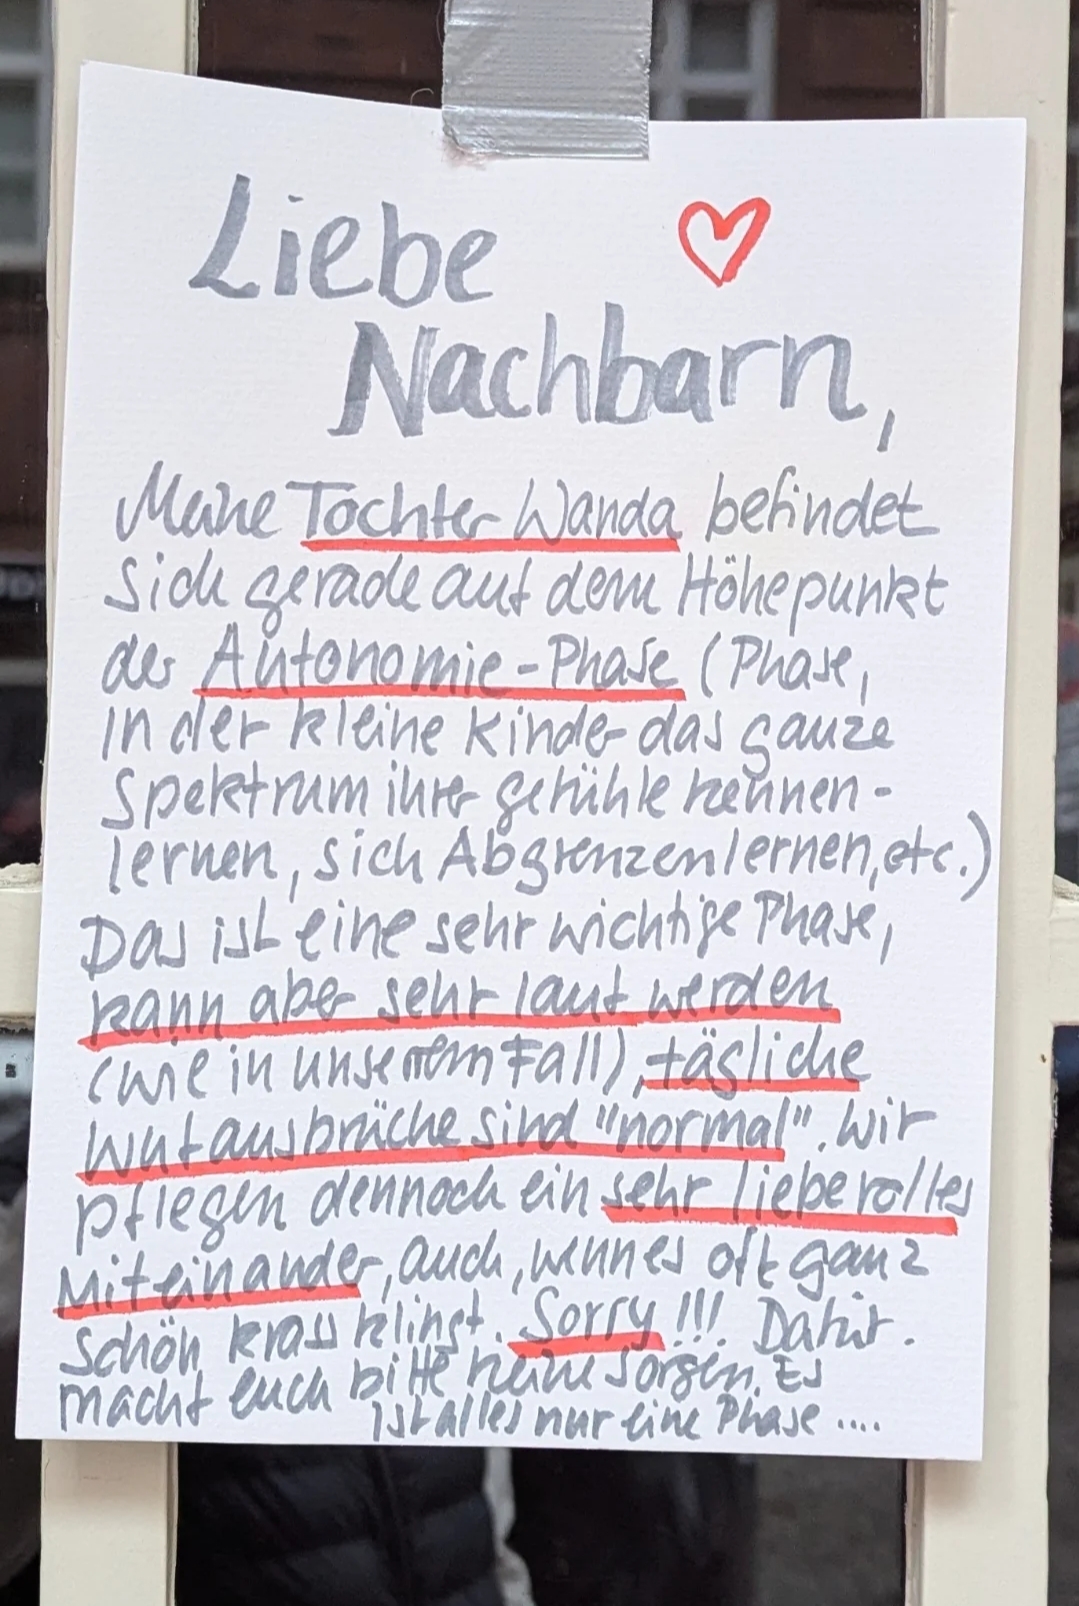 Liebe
Nachbarn,
Meine Tochter Wanda befindet
sich gerade auf dem Höhepunkt
der Autonomie-Phase (Phase,
in der kleine Kinder das ganze
Spektrum ihrer Gefühle kennen-
lernen, sich Abgrenzen lernen, etc.)
Das ist eine sehr wichtige Phase,
kann aber sehr laut werden
(wie in unserem Fall), tägliche
Wutausbrüche sind "normal". Wir
pflegen dennoch ein sehr liebevolles
Miteinander, auch, wenn es oft ganz
schön krass klingt. Sorry!!! Dafür.
macht euch bitte keine Sorgen. Es
ist alles nur eine Phase ....